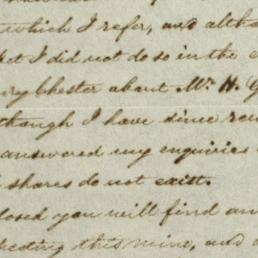 which I refer, and altho
et I did not do so in the
Chester about Mr. H. G
though I have since re
answered my enquiries
shares do not exist.
losed you will find an
this mine, and